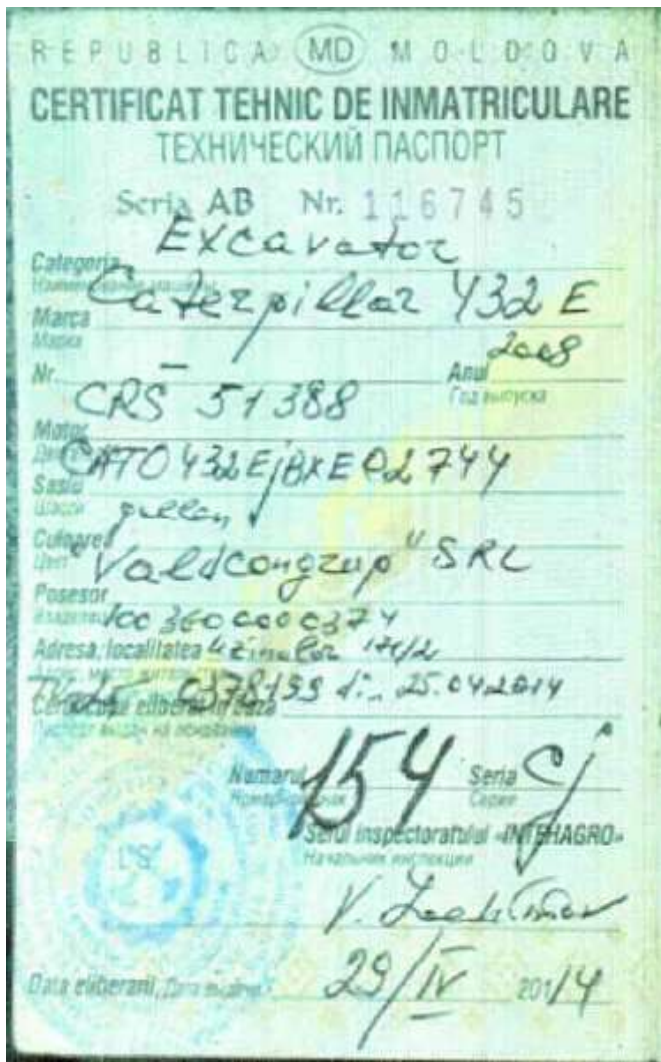 REPUBLICA MD MOLDOVA
CERTIFICAT TEHNIC DE INMATRICULARE
ТЕХНИЧЕСКИЙ ПАСПОРТ
Seria AB Nr. 116745
Excavator
Categoria
Наименование машины
Caterpillar 432 E
Marca
Марка
2008
Nr. — Anul
Год выпуска
CRS 51388
Motor
CATO432EjBXE02744
Sasiu
Шасси
galben
Culoarea
Цвет
"Valdcongrup" SRL
Posesor
Владелец
1003600000374
Adresa, localitatea Uzinelor 171/2
0378199 din 25.04.2014
Certificatul eliberat in baza
Паспорт выдан на основании
Numarul 154 Seria Cj
Номерной знак Серия
Seful inspectoratului «INTEHAGRO»
Начальник инспекции
L.S.
V.
Data eliberarii, Дата выдачи 29/IV 2014